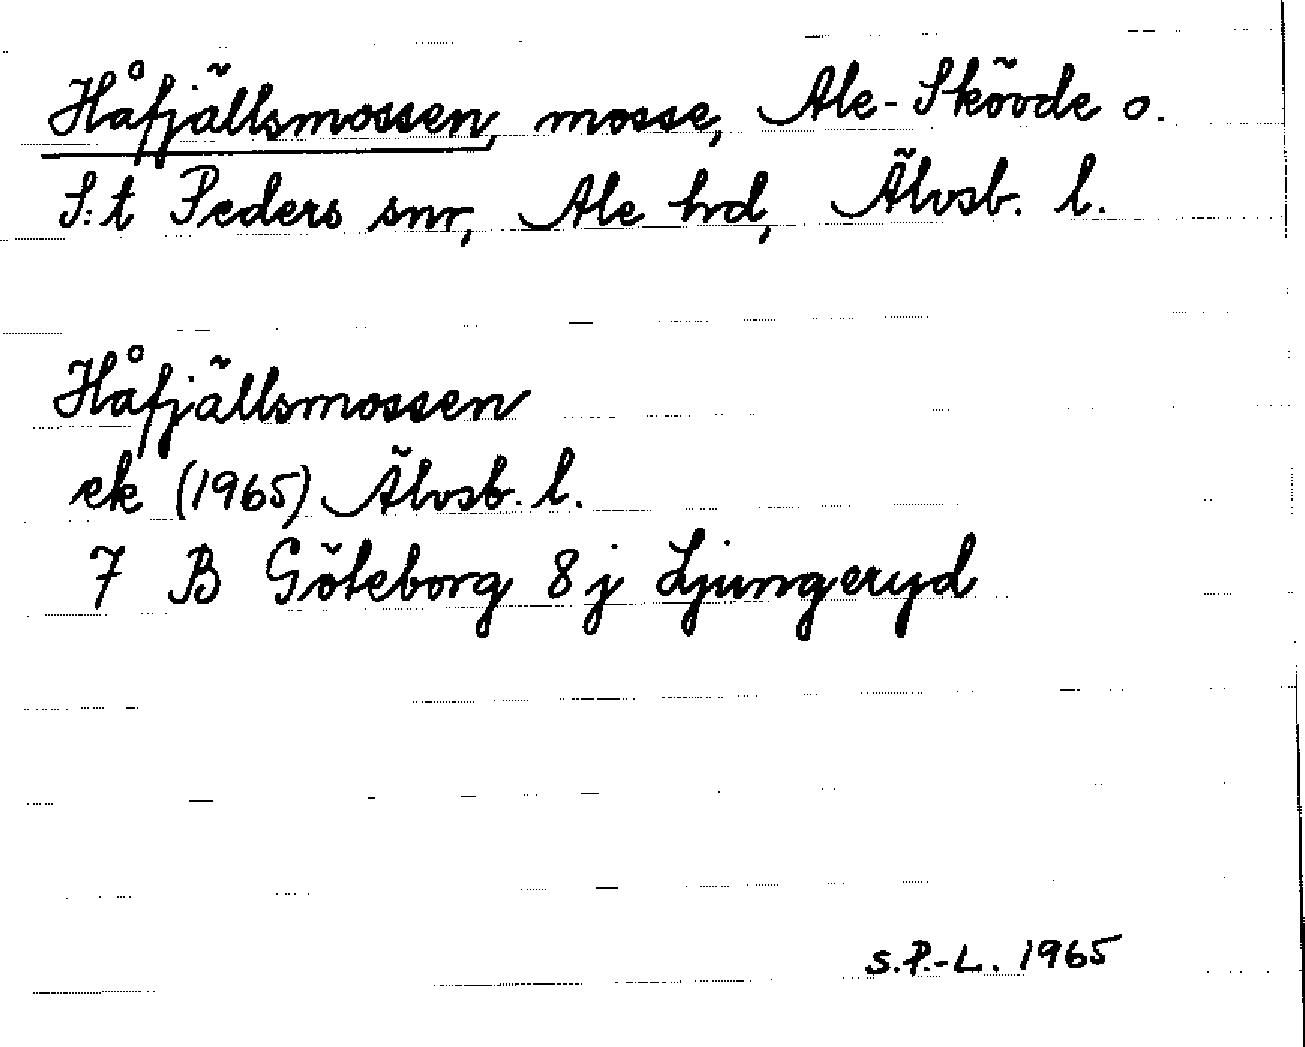 Håfjällsmossen, mosse, Ale-Skövde o.
S:t Peders snr, Ale hrd, Älvsb. l.
Håfjällsmossen
ek (1965) Älvsb. l.
7 B Göteborg 8 j Ljungeryd
S.P.-L. 1965